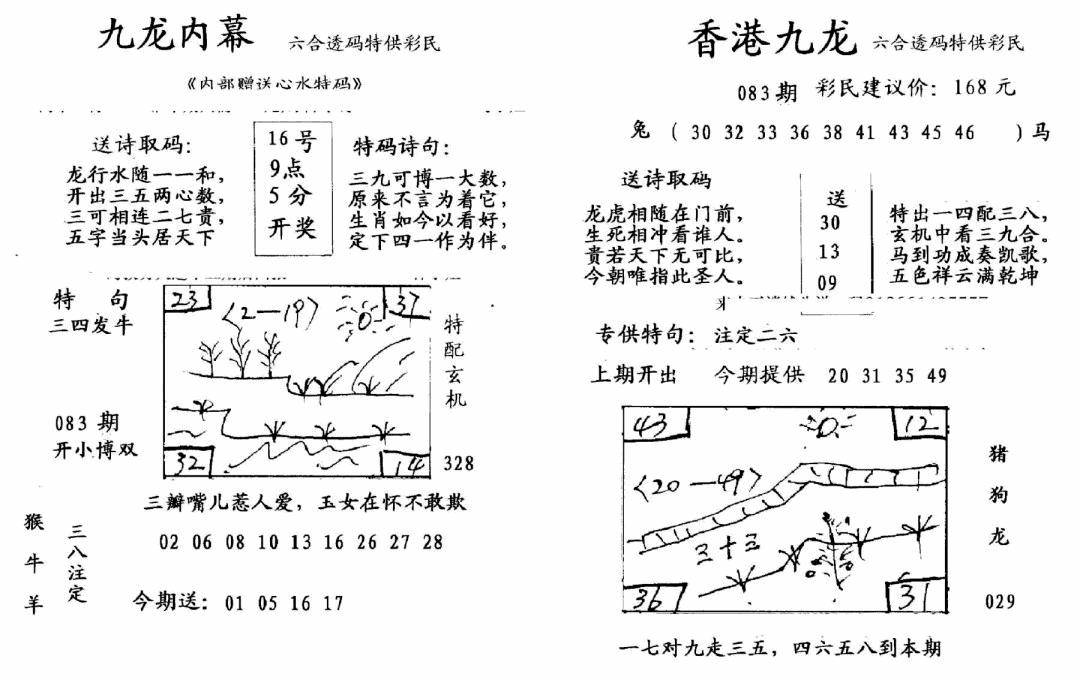 九龙内幕 六合透码特供彩民
《内部赠送心水特码》
送诗取码：
龙行水随一一和，
开出三五两心数，
三可相连二七贵，
五字当头居天下
16号
9点
5分
开奖
特码诗句：
三九可博一大数，
原来不言为着它，
生肖如今以看好，
定下四一作为伴。
特 句
三四发牛
083期
开小博双
23
37
〈2—19〉
32
14
特配玄机
328
三瓣嘴儿惹人爱，玉女在怀不敢欺
猴牛羊
三八注定
02 06 08 10 13 16 26 27 28
今期送：01 05 16 17
香港九龙 六合透码特供彩民
083期 彩民建议价：168元
兔（30 32 33 36 38 41 43 45 46 ）马
送诗取码
龙虎相随在门前，
生死相冲看谁人。
贵若天下无可比，
今朝唯指此圣人。
送
30
13
09
特出一四配三八，
玄机中看三九合。
马到功成奏凯歌，
五色祥云满乾坤
专供特句：注定二六
上期开出 今期提供 20 31 35 49
43
12
〈20—49〉
三十三
36
31
猪
狗
龙
029
一七对九走三五，四六五八到本期